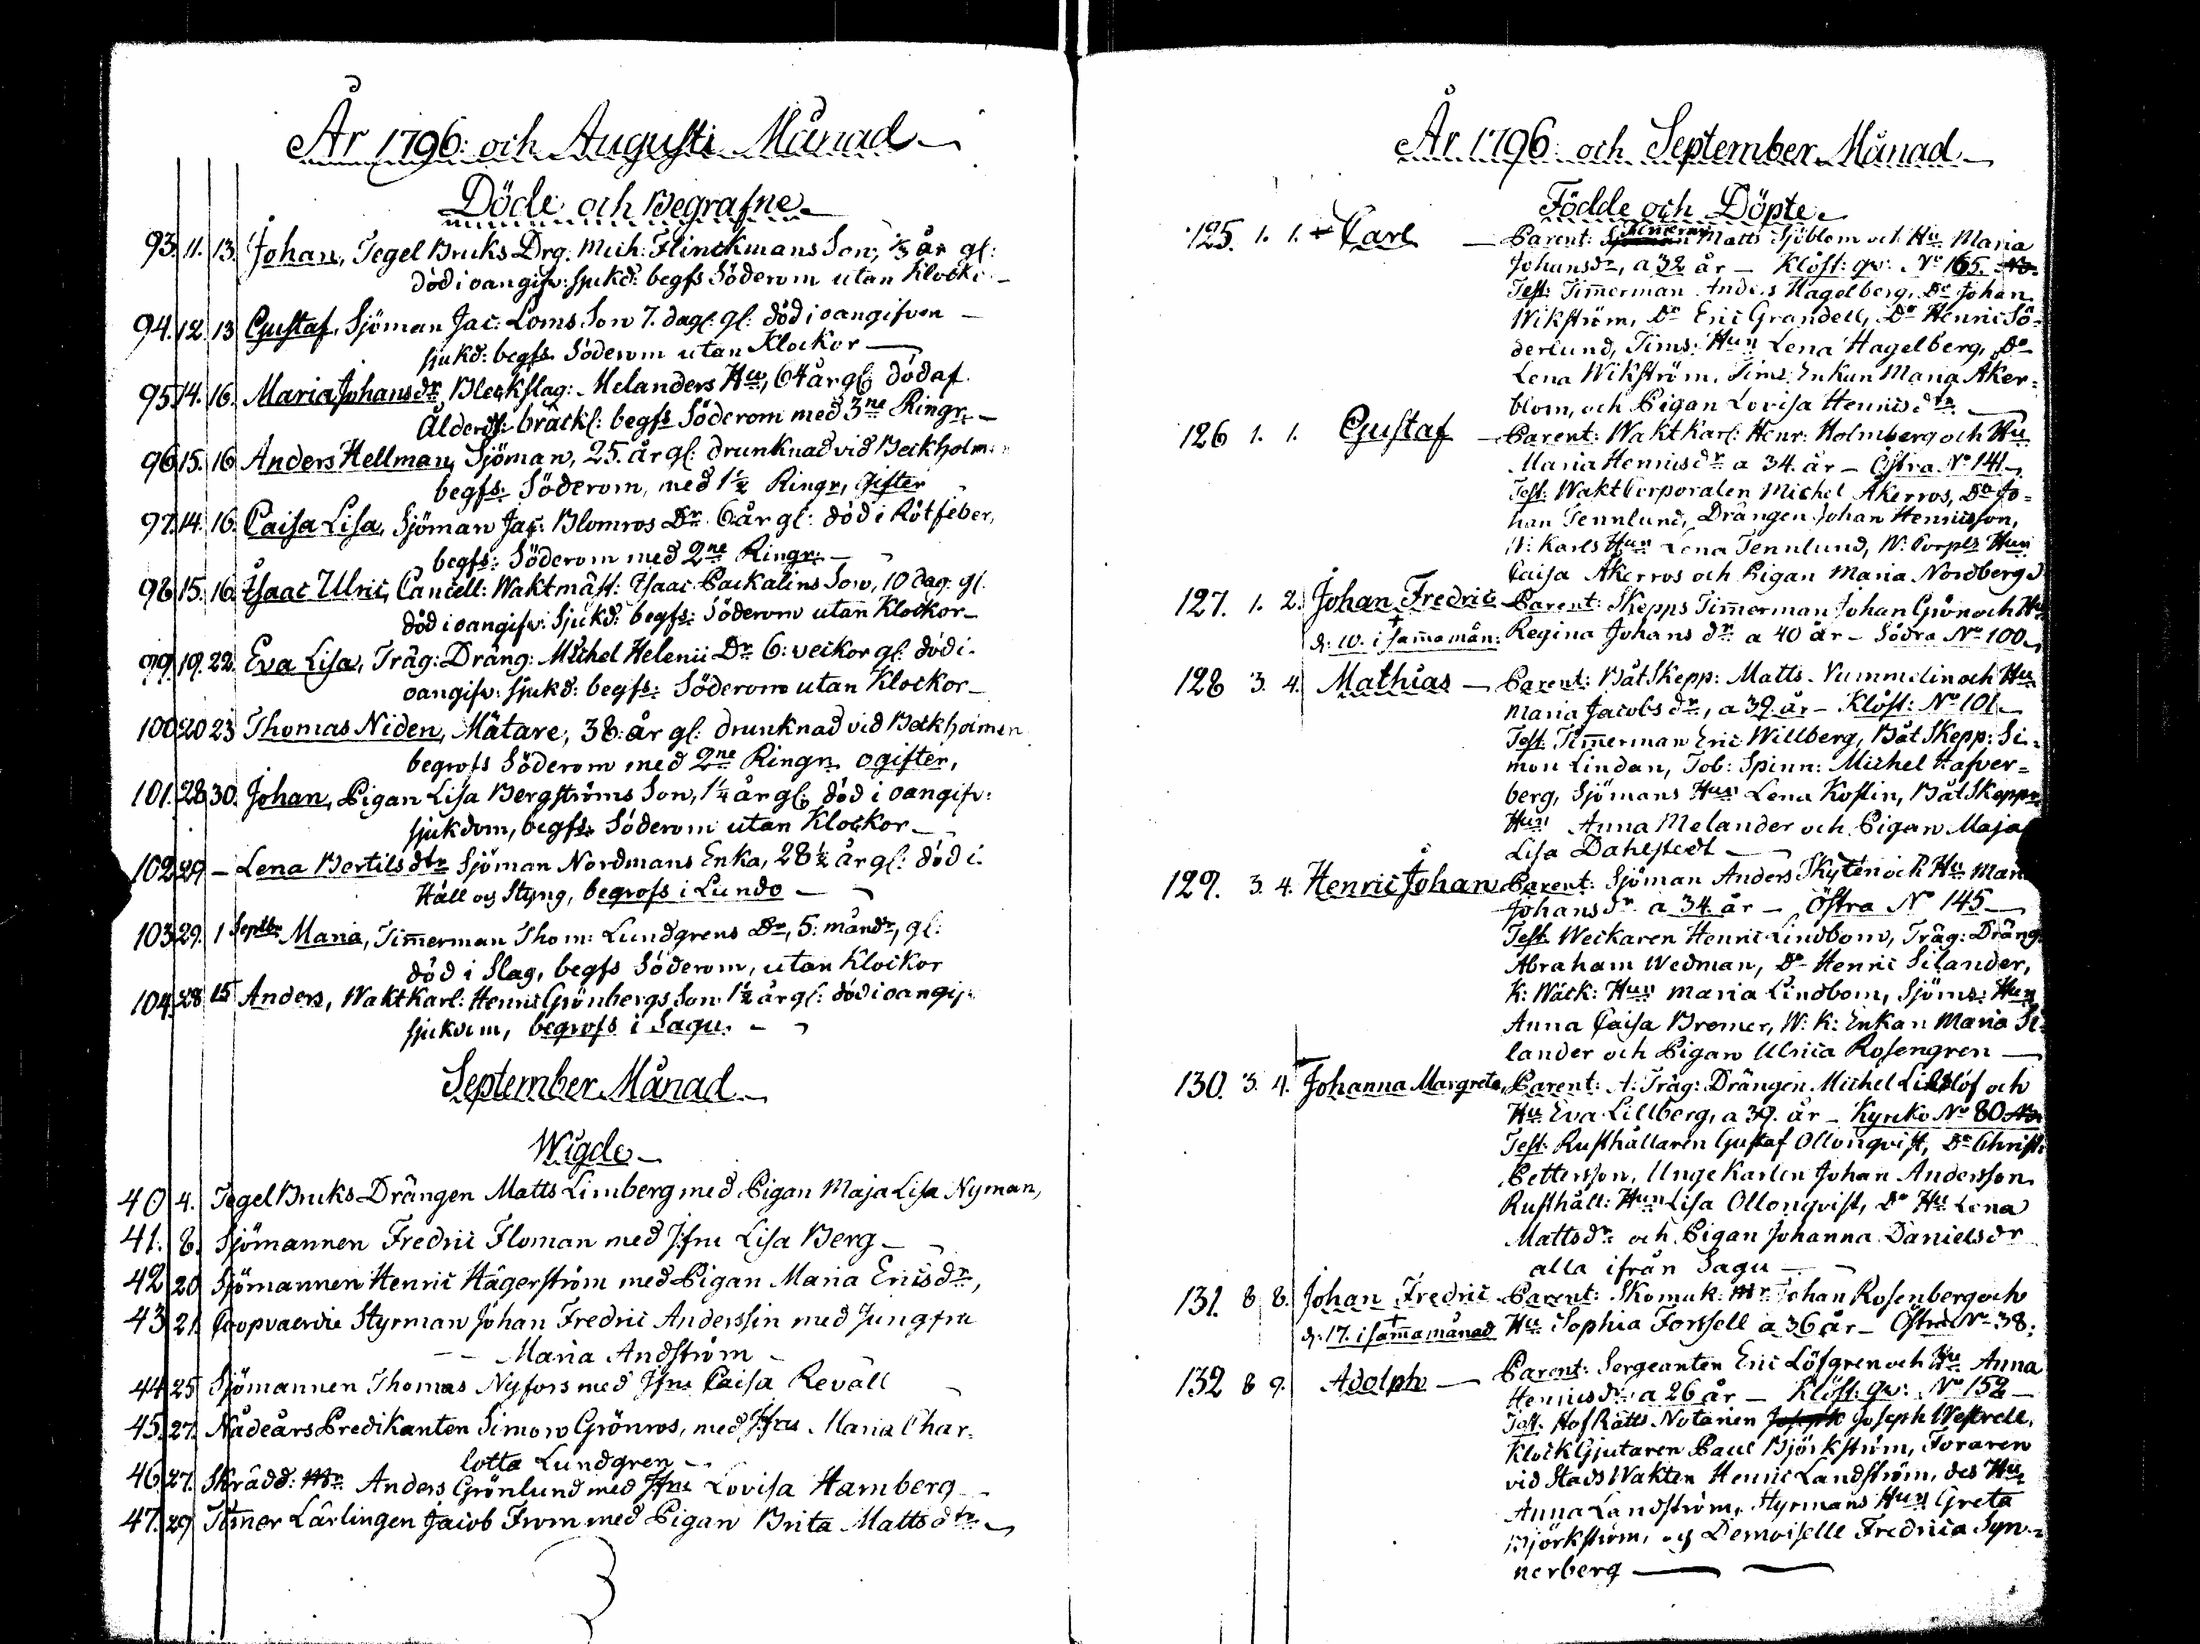 År 1796. och Augusti Månad
Döde och Begrafne
93. 11. 13. Johan, Tegel Bruks Drg. Mich: Flinckmans Son, 1/3 år gl:
död i oangifv: sjukd: begfs Söderom utan Klockr
94. 12. 13 Gustaf, Sjöman Jac: Loms Son 7. dag: gl: död i oangifven
sjukd: begfs. Söderom utan Klockor
95 14. 16. Maria Johansdr, Bleckslag: Melanders Hu, 64 år gl: död af
Ålderds: bräckl: begfs Söderom med 3ne Ringr.
96 15. 16 Anders Hellman, Sjöman, 25. år gl: drunknad vid Beckholm:
begfs: Söderom, med 1½ Ringr, gifter
97. 14. 16. Caisa Lisa, Sjöman Jac: Blomros Dr. 6 år gl: död i Rötfeber,
begfs: Söderom med 2ne Ringr.
98 15. 16. Isaac Ulric, Cancell: Waktmäst: Isaac Packalins Son, 10 dag: gl.
död i oangifv: Sjukd: begfs: Söderom utan Klockor
99. 19. 22. Eva Lisa, Träg: Dräng: Michel Helenii Dr 6: veckor gl: död i
oangifv: sjukd: begfs: Söderom utan Klockor
100 20 23 Thomas Niden, Mätare, 38. år gl: drunknad vid Beckholmen
begrofs Söderom med 2ne Ringr. ogifter,
101. 28 30. Johan, Pigan Lisa Bergströms Son, 1¼ år gl: död i oangifv:
sjukdom, begfs: Söderom utan Klockor
102 29 — Lena Bertilsdtr Sjöman Nordmans Enka, 28½ år gl: död i
Håll og Styng, begrofs i Lundo
103 29. 1 Septbr Maria, Timerman Thom: Lundgrens Dr, 5: måndr, gl:
död i Slag, begfs Söderom, utan Klockor
104 28 15 Anders, Waktkarl: Henric Grönbergs Son 1½ år gl: död i oangif:
sjukdom, begrofs i Sagu.
September Månad
Wigde
40 4. Tegel Bruks Drängen Matts Limberg med Pigan Maja Lisa Nyman,
41. 8. Sjömannen Fredric Floman med Jfru Lisa Berg
42 20 Sjömannen Henric Hägerström med Pigan Maria Ericsdr,
43 21. Coopvaerdie Styrman Johan Fredric Anderssin med Jungfru
Maria Andström
44 25 Sjömannen Thomas Nyfors med Jfru Caisa Revall
45. 27. Nådeårs Predikanten Simon Grönros, med Jfru Maria Char-
lotta Lundgren
46 27. Skrädd: Mr Anders Grönlund med Jfru Lovisa Hamberg
47. 29 Timer Lärlingen Jacob From med Pigan Brita Mattsdtr
År 1796. och September Månad
Födde och Döpte
125. 1. 1. Carl — Parent: Timerm: Matts Sjöblom och Hu Maria
Johansdr, a 32 år — Klöst: qv: No 165.
Test: Timerman Anders Hagelberg, Do Johan
Wikström, Do Eric Grandell, Do Henric Sö-
derlund, Tims: Hun Lena Hagelberg, Do
Lena Wikström, Tims Enkan Maria Åker-
blom, och Pigan Lovisa Henricsdtr
126 1. 1. Gustaf — Parent: Wakt Karl: Henr: Holmberg och Hu
Maria Henricsdr a 34. år — Östra No 141
Test: Wakt Corporalen Michel Åkerros, Do Jo-
han Tennlund, Drängen Johan Henricsson,
W: Karls Hun Lena Tennlund, W: Corpls Hun
Caisa Åkerros och Pigan Maria Nordberg
127. 1. 2. Johan Fredric Parent: Skepps Timerman Johan Grön och Hu
d: 10. i samma mån: Regina Johansdr a 40 år — Södra No 100
128 3. 4. Mathias — Parent: Båt Skepp: Matts Nummelin och Hu
Maria Jacobsdr, a 39. år — Klöst: No 101
Test. Timerman Eric Willberg, Båt Skepp: Si-
mon Lindan, Tob: Spinn: Michel Hafver-
berg, Sjömans Hun Lena Koslin, Båt Skeppr
Hun Anna Melander och Pigan Maja
Lisa Dahlstedt
129. 3. 4. Henric Johan Parent: Sjöman Anders Skytén och Hu Maria
Johansdr a 34 år — Östra No 145
Test. Weckaren Henric Lindbom, Träg: Dräng.
Abraham Wedman, Do Henric Silander,
K: Wäck: Hun Maria Lindbom, Sjöms: Hun
Anna Caisa Bromer, W: K: Enkan Maria Si-
lander och Pigan Ulrica Rosengren
130. 3. 4. Johanna Margreta, Parent: A: Träg: Drängen Michel Lillöf och
Hu Eva Lillberg, a 39. år — Kyrko No 80
Test: Rusthållaren Gustaf Ollonqvist, Do Christ:
Pettersson, Unge Karlen Johan Andersson
Rusthåll: Hun Lisa Ollonqvist, Do Hu Lena
Mattsdr och Pigan Johanna Danielsdr
alla ifrån Sagu
131. 8 8. Johan Fredric Parent: Skomak: Mr Johan Rosenberg och
d: 17. i samma månad Hu Sophia Forssell a 36 år — Östra No 38.
132 8 9. Adolph — Parent: Sergeanten Eric Löfgren och Hu Anna
Henricsdr a 26 år — Klöst: qv: No 152
Test: Hof Rätts Notarien Joseph Westrell,
Klock Gjutaren Paul Björkström, Foraren
vid Stads Wakten Henric Landström, des Hu
Anna Landström, Styrmans Hun Greta
Björkström, og Demoiselle Fredrica Syn-
nerberg